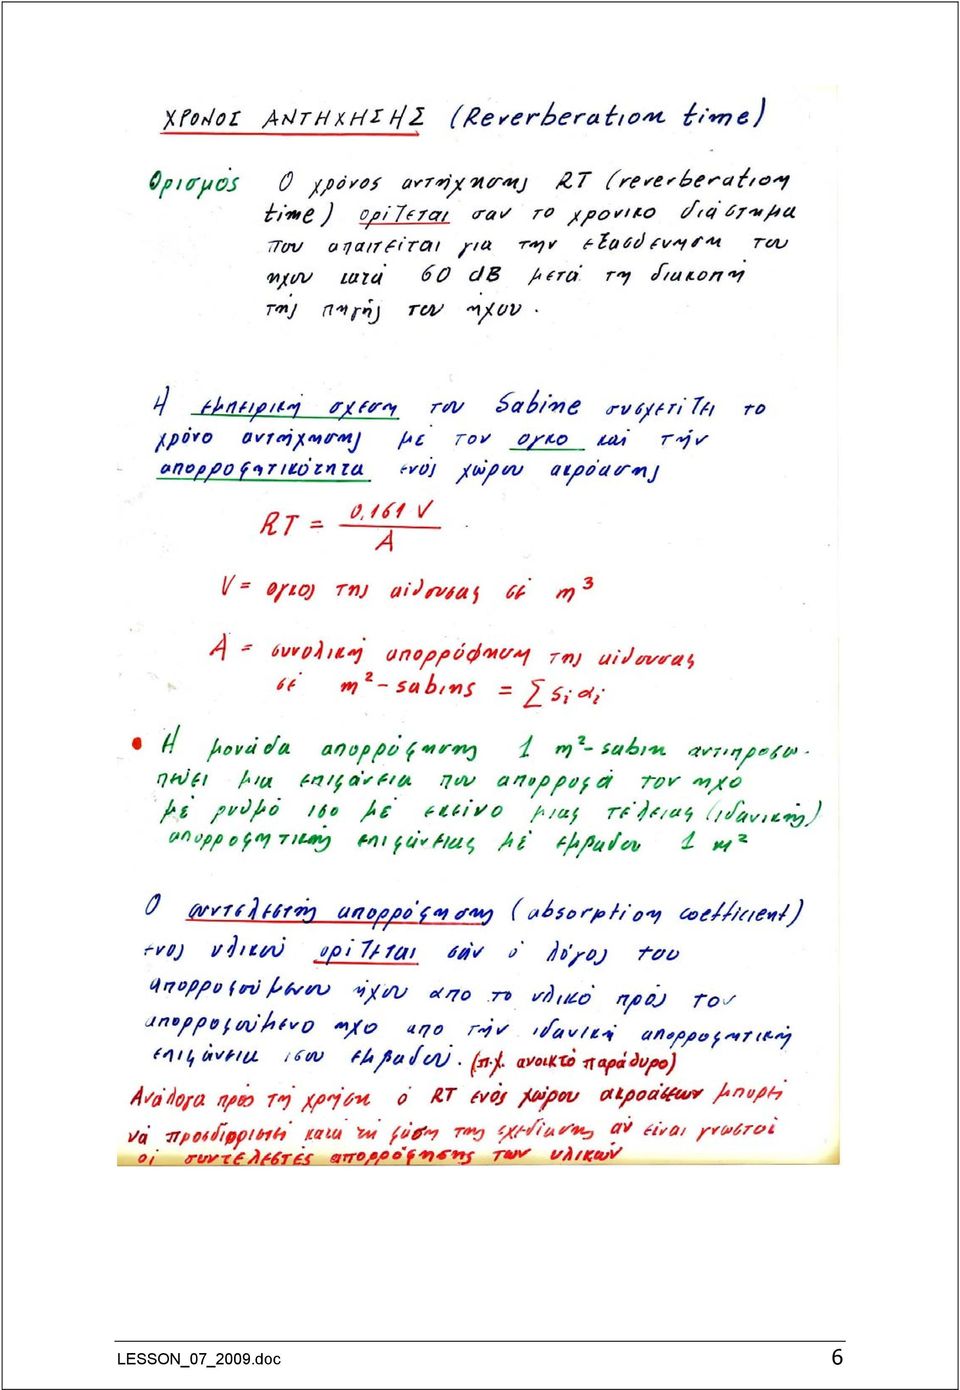 ΧΡΟΝΟΣ ΑΝΤΗΧΗΣΗΣ (Reverberation time)
Ορισμός Ο χρόνος αντήχησης RT (reverberation
time) ορίζεται σαν το χρονικο διάστημα
που απαιτείται για την εξασθενηση του
ηχου κατά 60 dB μετά τη διακοπή
τής πηγής του ηχου.
Η εμπειρική σχεση του Sabine συσχετίζει το
χρόνο αντήχησης με τον ογκο και τήν
απορροφητικότητα ενός χώρου ακρόασης
RT = 0.161 V
A
V = ογκος της αίθουσας σέ m³
A = συνολική απορρόφηση της αίθουσας
σέ m²-sabins = Σ Si αi
• Η μονάδα απορρόφησης 1 m²-sabin αντιπροσω-
πεύει μια επιφάνεια που απορροφά τον ηχο
μέ ρυθμό ισο μέ εκείνο μιας τέλειας (ιδανικής)
απορροφητικής επιφάνειας μέ εμβαδου 1 m²
Ο συντελεστής απορρόφησης (absorption coefficient)
ενος υλικού ορίζεται σάν ο λόγος του
απορροφούμενου ήχου απο το υλικό πρός τον
απορροφούμενο ηχο απο τήν ιδανική απορροφητική
επιφάνεια ισου εμβαδού. (π.χ. ανοικτό παράθυρο)
Ανάλογα πρός τη χρήση ο RT ενός χώρου ακροάσεων μπορεί
νά προσδιοριστεί κατά τη φάση της σχεδίασης αν είναι γνωστοί
οι συντελεστές απορρόφησης των υλικών
LESSON_07_2009.doc 6